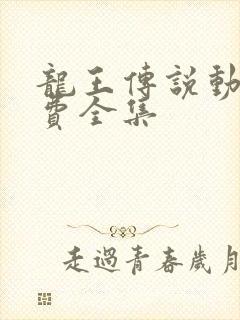 龍王傳説動
費全集
走過青春歲月